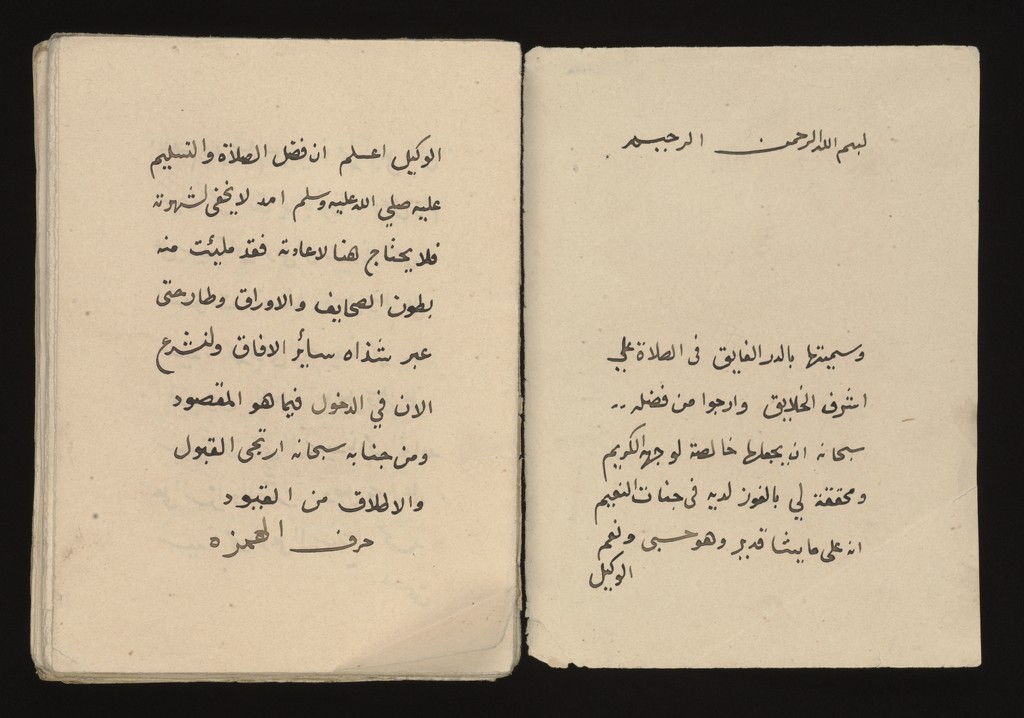 لبسم الله الرحمن الرحيم
وسميتها بالدر الفايق فى الصلاة علي
اشرف الخلايق وارجوا من فضله
سبحانه ان يجعلها خالصة لوجهه الكريم
ومحققة لي بالفوز لديه فى جنات النعيم
انه على مايشا قدير وهو حسبى ونعم
الوكيل
الوكيل اعلم ان فضل الصلاة والتسليم
عليه صلي الله عليه وسلم امد لايخفى لشهرته
فلايحتاج هنا لاعادته فقد مليئت منه
بطون الصحايف والاوراق وطارحتى
عبر شذاه سائر الافاق ولنشرع
الان في الدخول فيما هو المقصود
ومن جنابه سبحانه ارتجى القبول
والاطلاق من القيود
حرف الهمزه